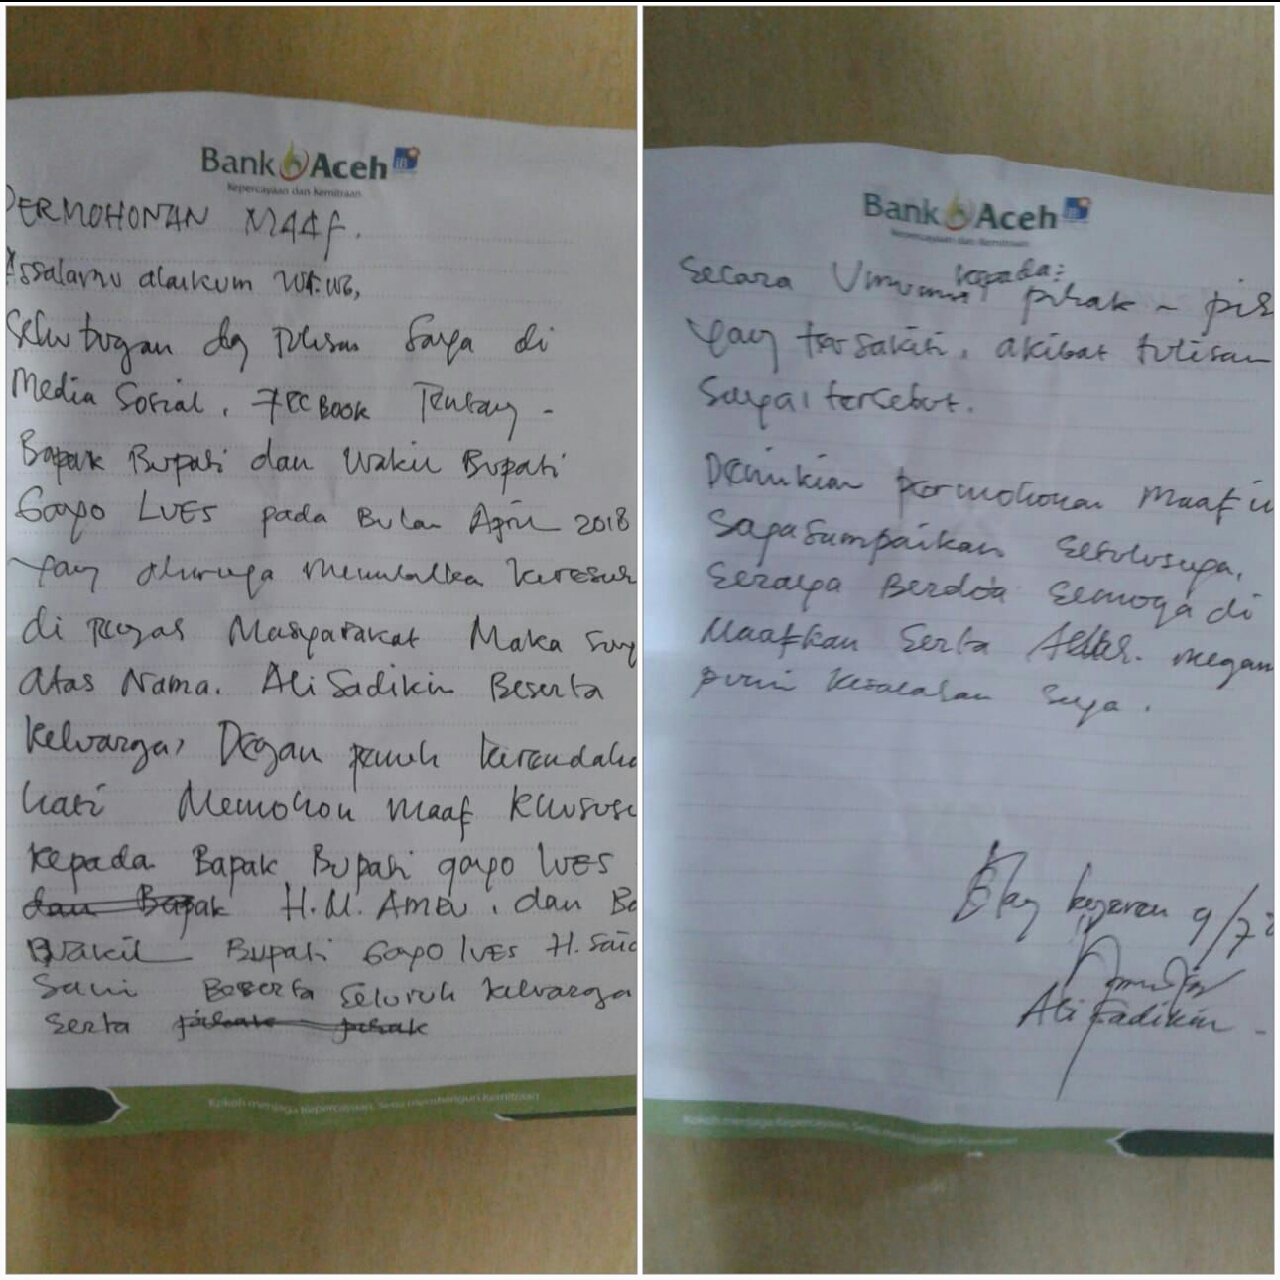 Bank Aceh
Kepercayaan dan Kemitraan
PERMOHONAN MAAF.
Assalamu alaikum Wr.wb,
Sehubugan dg Tulisan Saya di
Media Sosial, FECBOOK Tentang -
Bapak Bupati dan Wakil Bupati
Gayo LUES pada Bulan April 2018
Yang
di Masyarakat Maka Say
Atas Nama. Ali Sadikin Beserta
Keluarga, Degan penuh kerendaha
hati Memohon Maaf Khusus
Kepada Bapak Bupati gayo lues
dan Bapak H.M. Amru, dan Ba
Wakil Bupati Gayo lues H. Said
Sani Beserta Seluruh Keluarga
Serta pihak pihak
Kokoh menjaga Kepercayaan, Setia membangun Kemitraan
Bank Aceh
Kepercayaan dan Kemitraan
Secara Umumnya kepada: pihak - pi
Yang tersakiti, akibat tulisan
Saya tersebut.
Demikian permohonan Maaf i
Saya Sampaikan Setulusnya,
Seraya Berdo'a Semoga di
Maafkan Serta Allah. Megam
puni Kesalahan Saya.
Blang kejeren 9/7
Ali Sadikin
Kokoh menjaga Kepercayaan, Setia membangun Kemitraan